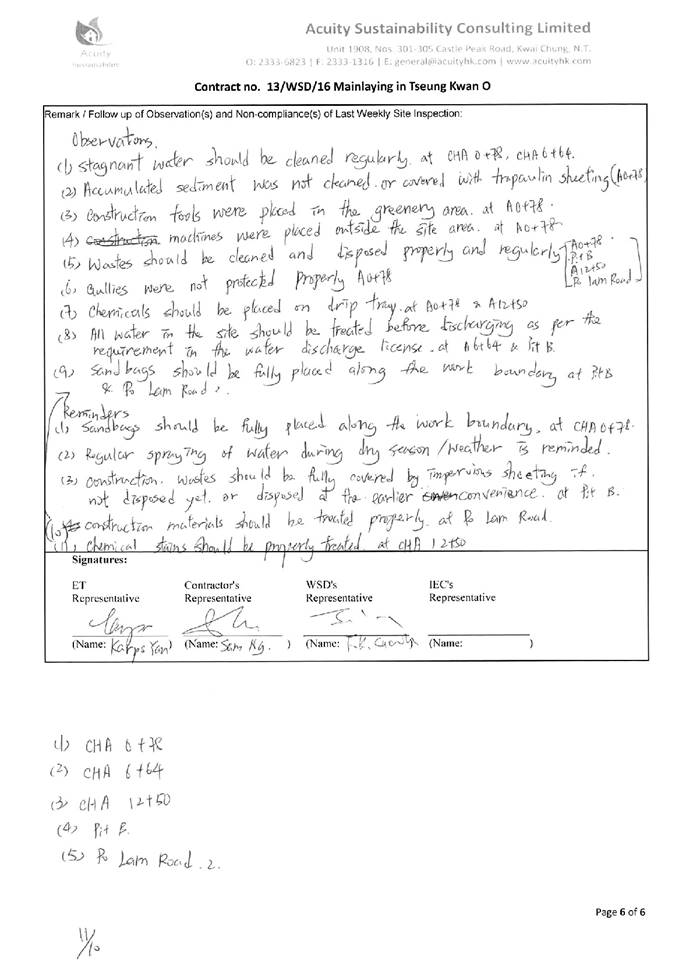 Acuity Sustainability Consulting Limited
Acuity
Sustainability
Unit 1908, Nos. 301-305 Castle Peak Road, Kwai Chung, N.T.
O: 2333-6823 | F: 2333-1316 | E: general@acuityhk.com | www.acuityhk.com
Contract no. 13/WSD/16 Mainlaying in Tseung Kwan O
Remark / Follow up of Observation(s) and Non-compliance(s) of Last Weekly Site Inspection:
Observations.
(1) stagnant water should be cleaned regularly. at CHA 0+78, CHA 6+64.
(2) Accumulated sediment was not cleaned. or covered with trapaulin sheeting (A0+78)
(3) Construction tools were placed in the greenery area. at A0+78.
(4) construction machines were placed outside the site area. at A0+78.
(5) Wastes should be cleaned and disposed properly and regularly [A0+78.
Pit B
A12+50
Po Lam Road]
(6) Gullies were not protected Properly A0+78
(7) Chemicals should be placed on drip tray. at A0+78 & A12+50
(8) All water in the site should be treated before discharging as per the
requirement in the water discharge license. at A6+64 & Pit B.
(9) Sandbags should be fully placed along the work boundary at Pit B
& Po Lam Road 2.
Reminders
(1) Sandbags should be fully placed along the work boundary. at CHA 0+78.
(2) Regular spraying of water during dry season/weather is reminded.
(3) construction. wastes should be fully covered by impervious sheeting if.
not disposed yet. or disposed at the earlier convenience. at Pit B.
(10) construction materials should be treated properly. at Po Lam Road.
(11) Chemical stains should be properly treated. at CHA 12+50
Signatures:
ET Contractor's WSD's IEC's
Representative Representative Representative Representative
(Name: Karps Yan) (Name: Sam Ng. ) (Name: T.K. ) (Name: )
(1) CHA 0+78
(2) CHA 6+64
(3) CHA 12+50
(4) Pit B.
(5) Po Lam Road. 2.
Page 6 of 6
11/10